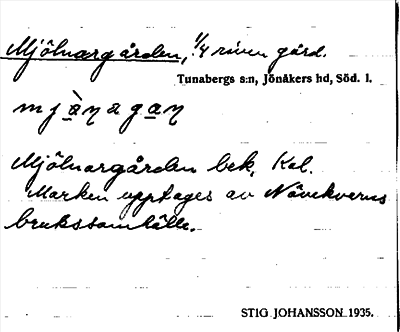 Mjölnargården, 1/4 riven gård.
Tunabergs s:n, Jönåkers hd, Söd. l.
Mjölnargården bek. Kal.
Marken upptages av Nävekverns
brukssamhälle.
STIG JOHANSSON 1935.